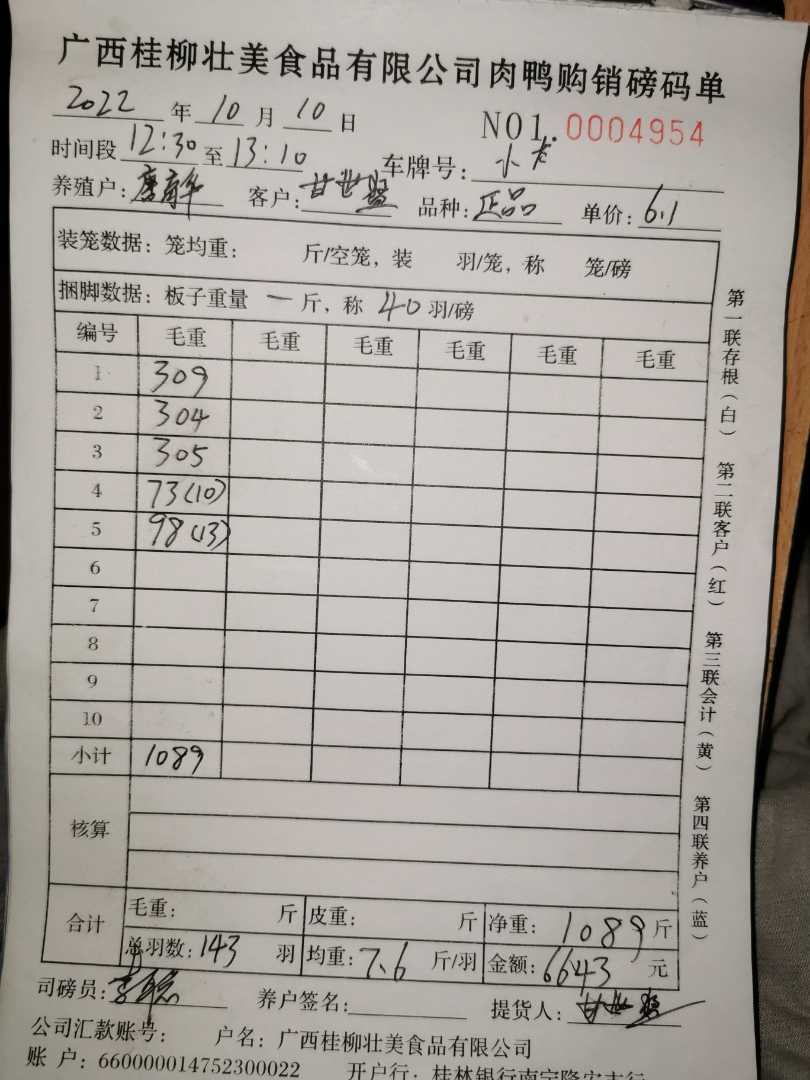 广西桂柳壮美食品有限公司肉鸭购销磅码单
2022 年 10 月 10 日 NO1. 0004954
时间段 12:30 至 13:10 车牌号: 小卡
养殖户: 客户: 甘世坚 品种: 正品 单价: 6.1
装笼数据: 笼均重: 斤/空笼, 装 羽/笼, 称 笼/磅
捆脚数据: 板子重量 一 斤, 称 40 羽/磅
编号 毛重 毛重 毛重 毛重 毛重 毛重
1 309
2 304
3 305
4 73(10)
5 98(13)
6
7
8
9
10
小计 1089
核算
合计 毛重: 斤 皮重: 斤 净重: 1089 斤
总羽数: 143 羽 均重: 7.6 斤/羽 金额: 6643 元
司磅员: 养户签名: 提货人: 甘世坚
公司汇款账号: 户名: 广西桂柳壮美食品有限公司
账 户: 660000014752300022 开户行: 桂林银行南宁隆安支行
第一联存根(白) 第二联客户(红) 第三联会计(黄) 第四联养户(蓝)